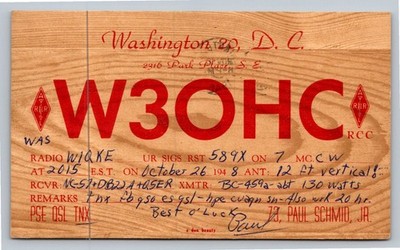 Washington 20, D. C.
2916 Park Place, S. E.
W3OHC
RCC
WAS
RADIO W1QKE UR SIGS RST 589X ON 7 MC CW
AT 2015 E.S.T. ON October 26 1948 ANT: 12 ft vertical!
RCVR XMTR. BC-459a-abt 130 watts
REMARKS Tnx fb qso es qsl- hpe cuagn sn- Also wrk 20 hr.
PSE QSL TNX Best o' Luck Paul PAUL SCHMID, JR.